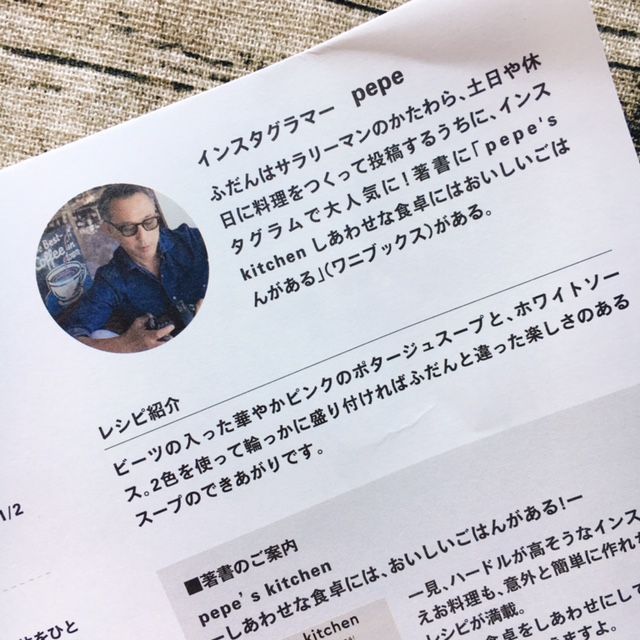 インスタグラマー pepe
ふだんはサラリーマンのかたわら、土日や休
日に料理をつくって投稿するうちに、インス
タグラムで大人気に！著書に「pepe's
kitchen しあわせな食卓にはおいしいごは
んがある」（ワニブックス）がある。
Best
Coffee
in
レシピ紹介
ビーツの入った華やかピンクのポタージュスープと、ホワイトソー
ス。2色を使って輪っかに盛り付ければふだんと違った楽しさのある
スープのできあがりです。
1/2
■著書のご案内
pepe's kitchen
ーしあわせな食卓には、おいしいごはんがある！ー
一見、ハードルが高そうなインス
えお料理も、意外と簡単に作れ
レシピが満載。
食卓をしあわせにして
kitchen
をひと